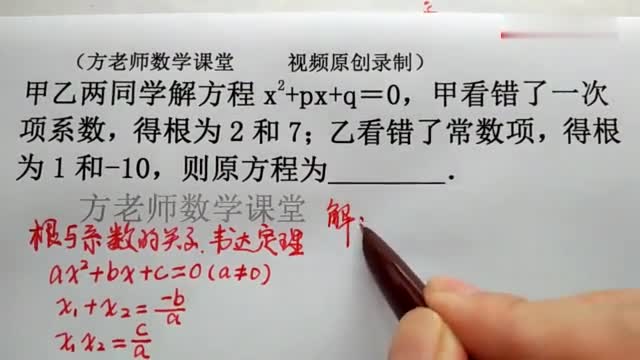 （方老师数学课堂 视频原创录制）
甲乙两同学解方程 x²+px+q＝0，甲看错了一次
项系数，得根为 2 和 7；乙看错了常数项，得根
为 1 和-10，则原方程为________．
方老师数学课堂
根与系数的关系.韦达定理
解:
ax²+bx+c=0(a≠0)
x₁+x₂=-b/a
x₁x₂=c/a